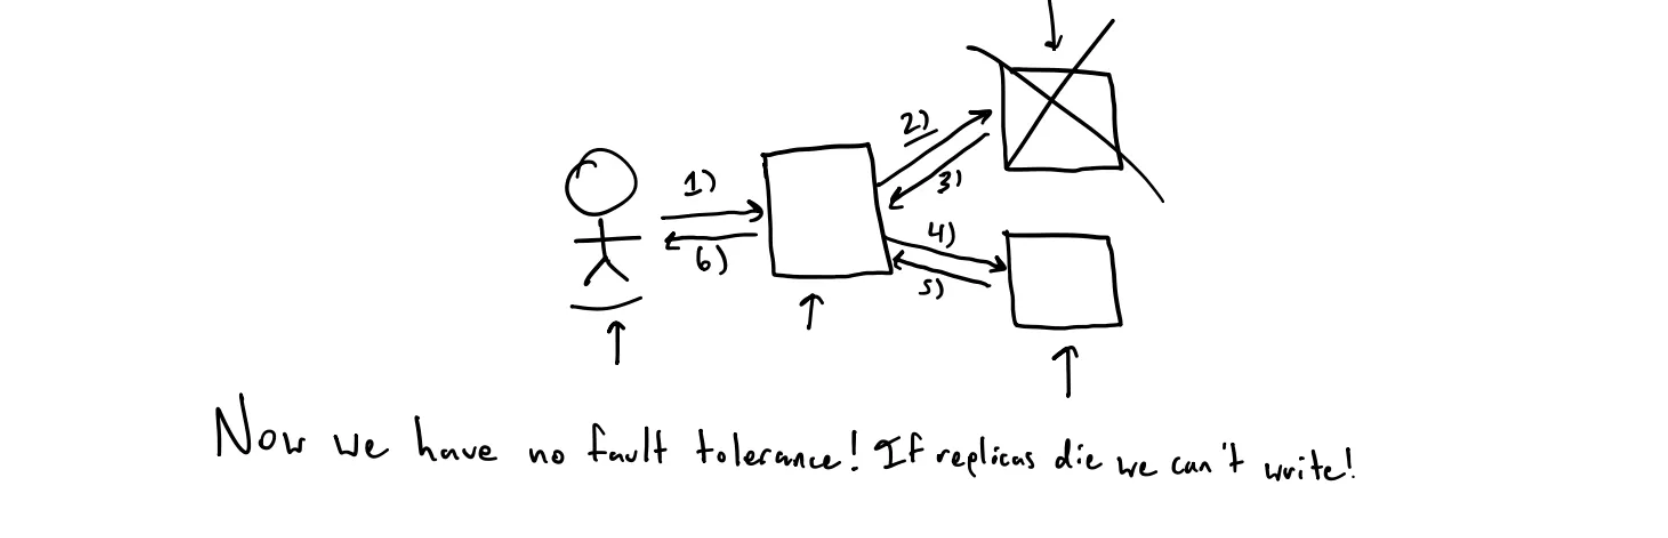 2)
3)
1)
4)
6)
5)
Now we have no fault tolerance! If replicas die we can't write!